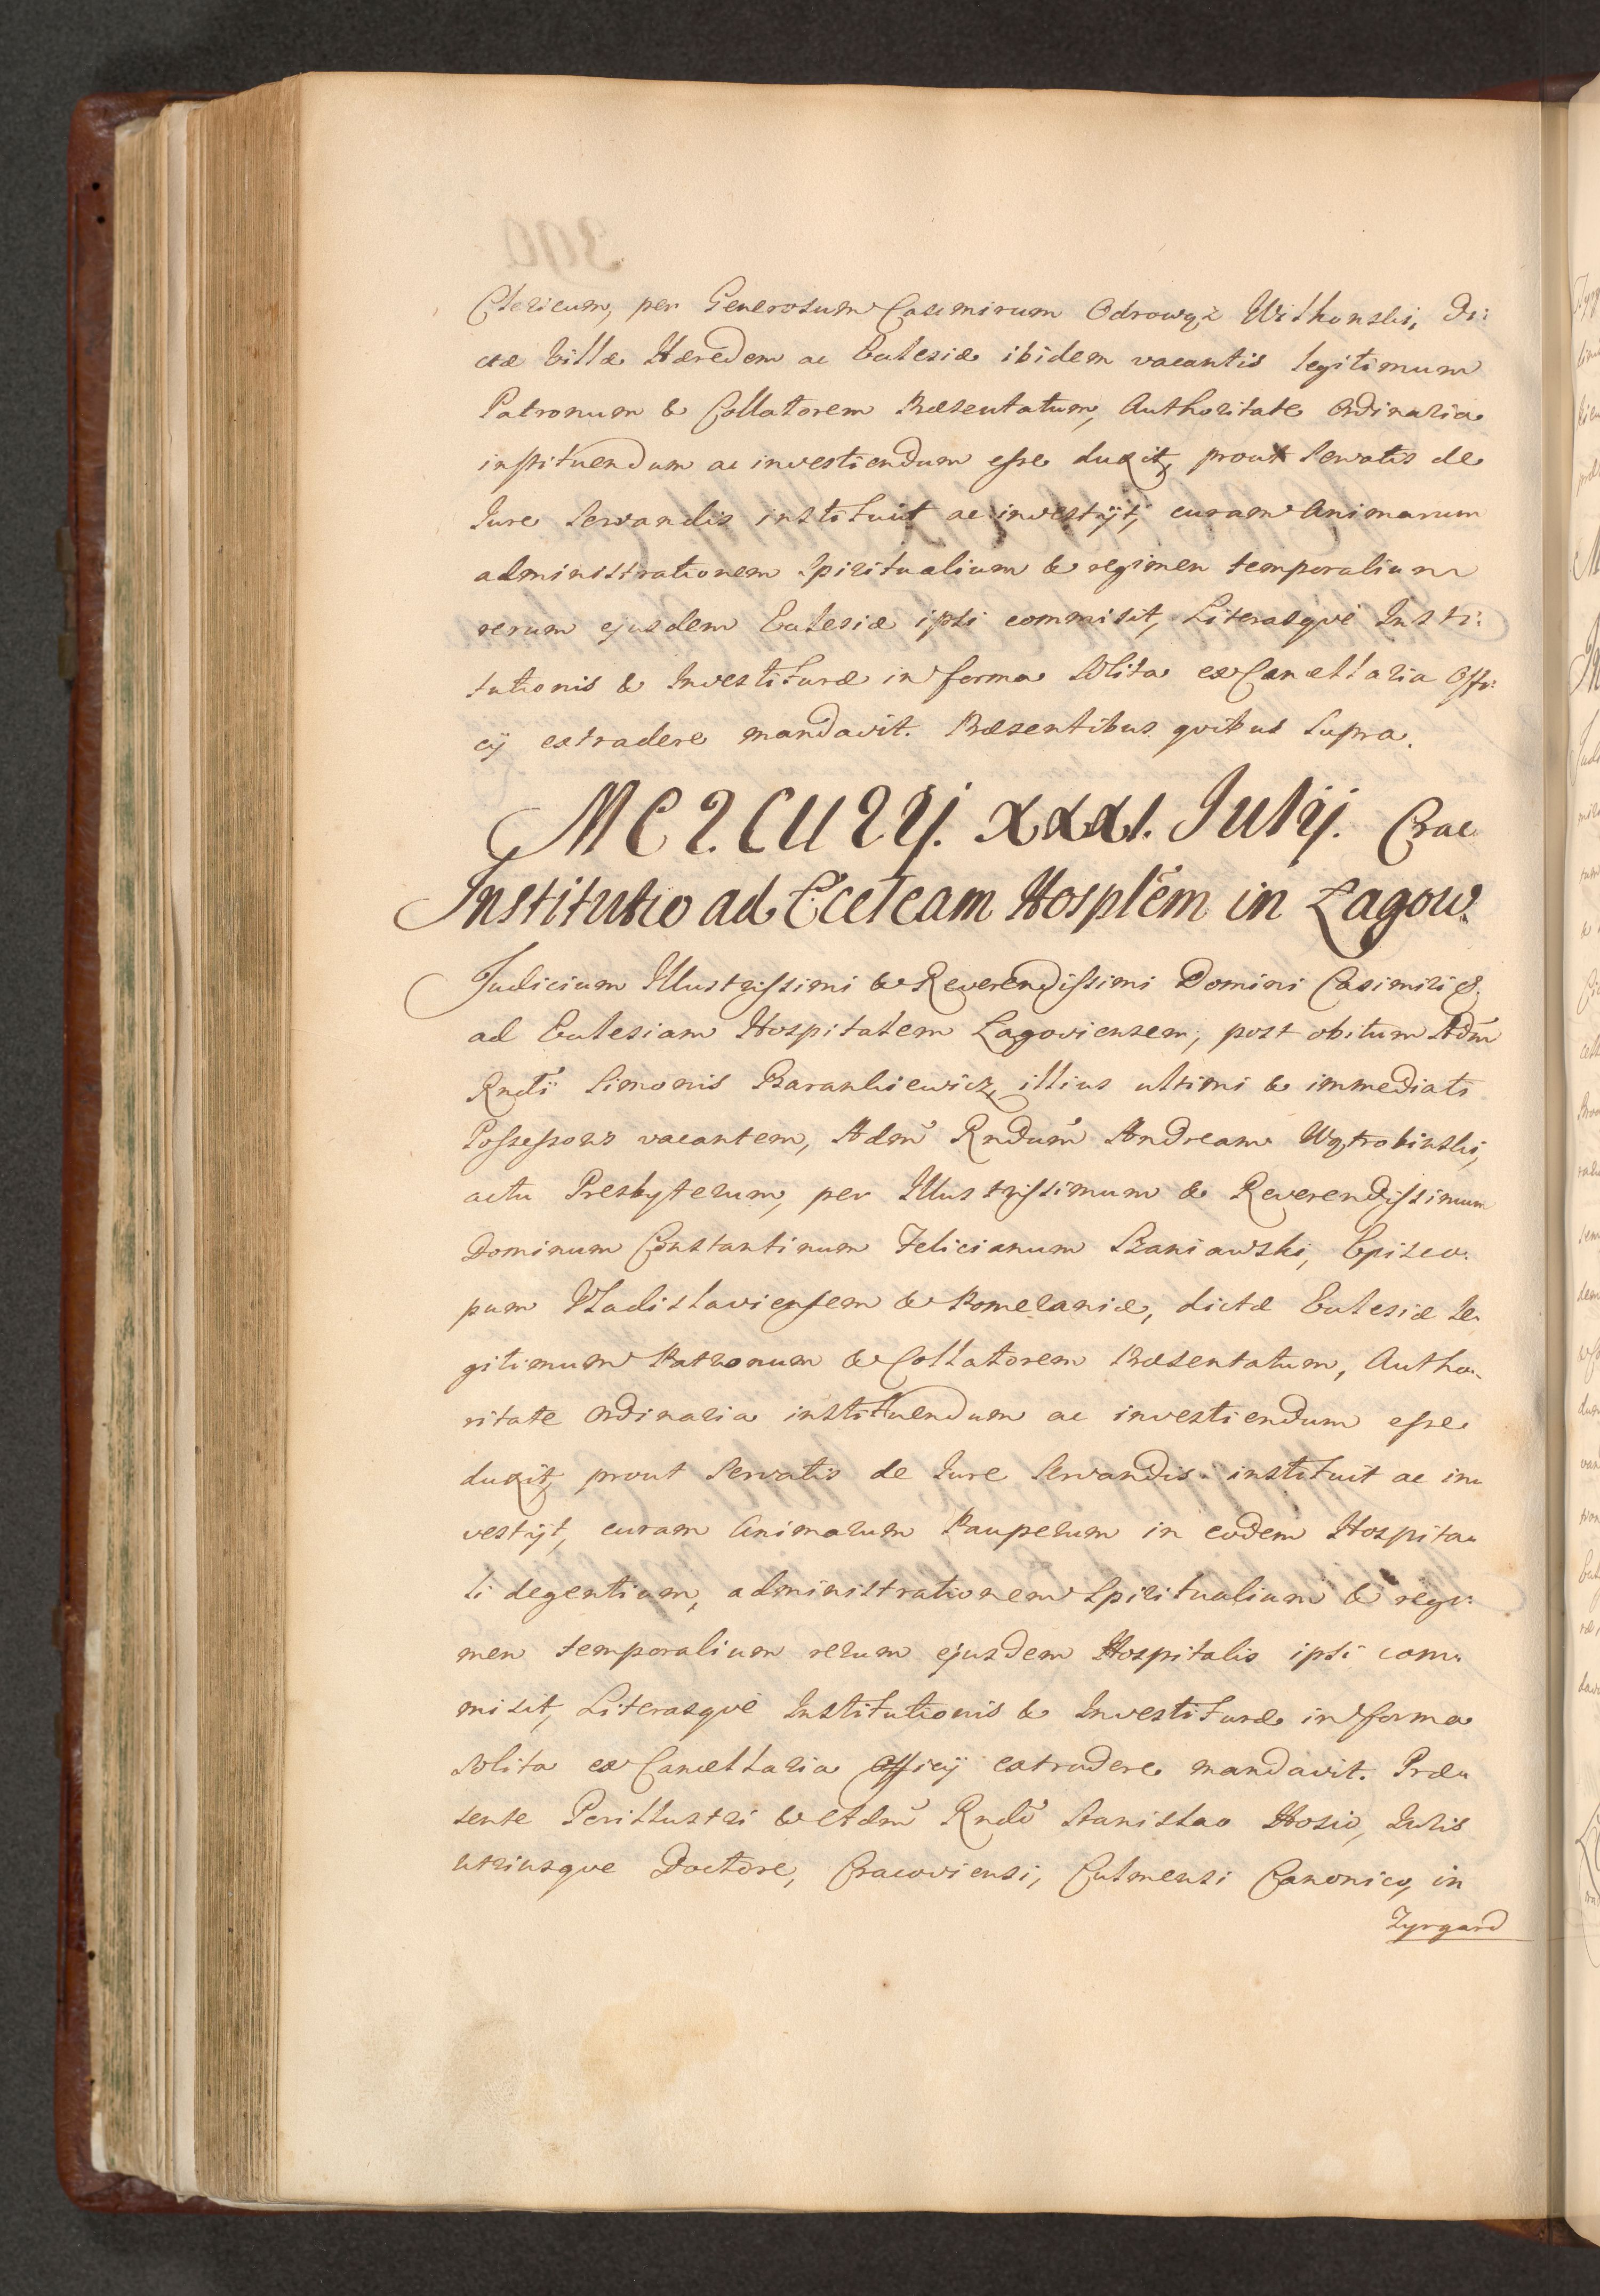 Clericum, per Generosum Casimirum Odrowąz Wilkonski, Di:
ctæ Villæ Hæredem ac Ecclesiæ ibidem vacantis legitimum
Patronum & Collatorem Præsentatum, Authoritate Ordinaria
instituendum ac investiendum esse duxit, prout servatis de
Jure servandis instituit ac investijt, curam Animarum
administrationem Spiritualium & regimen temporalium
rerum ejusdem Ecclesiæ ipsi commisit, Literasqve Insti:
tutionis & Investituræ in forma solita ex Cancellaria Offi:
cij extradere mandavit. Præsentibus qvibus supra.
Mercurij. xxxi. Julij. Crac
Institutio ad Eccleam Hosplem in Łagow.
Judicium Illustrissimi & Reverendissimi Domini Casimiri &.
ad Ecclesiam Hospitalem Lagoviensem, post obitum Adm
Rndi Simonis Barankiewicz, illius ultimi & immediati
Possessoris vacantem, Adm Rndum Andream Wątrobinski,
actu Presbyterum, per Illustrissimum & Reverendissimum
Dominum Constantinum Felicianum Szaniawski, Episco:
pum Vladislaviensem & Pomeraniæ, dictæ Ecclesiæ le:
gitimum Patronum & Collatorem Præsentatum, Autho:
ritate Ordinaria instituendum ac investiendum esse
duxit, prout servatis de Jure servandis instituit ac in:
vestijt, curam Animarum Pauperum in eodem Hospita:
li degentium, administrationem Spiritualium & regi:
men temporalium rerum ejusdem Hospitalis ipsi com:
misit, Literasqve Institutionis & Investituræ in forma
solita ex Cancellaria Officij extradere mandavit. Præ:
sente Perillustri & Adm Rndo Stanislao Hosio, Juris
utriusqve Doctore, Cracoviensi, Culmensi Canonico, in
Zyrgard